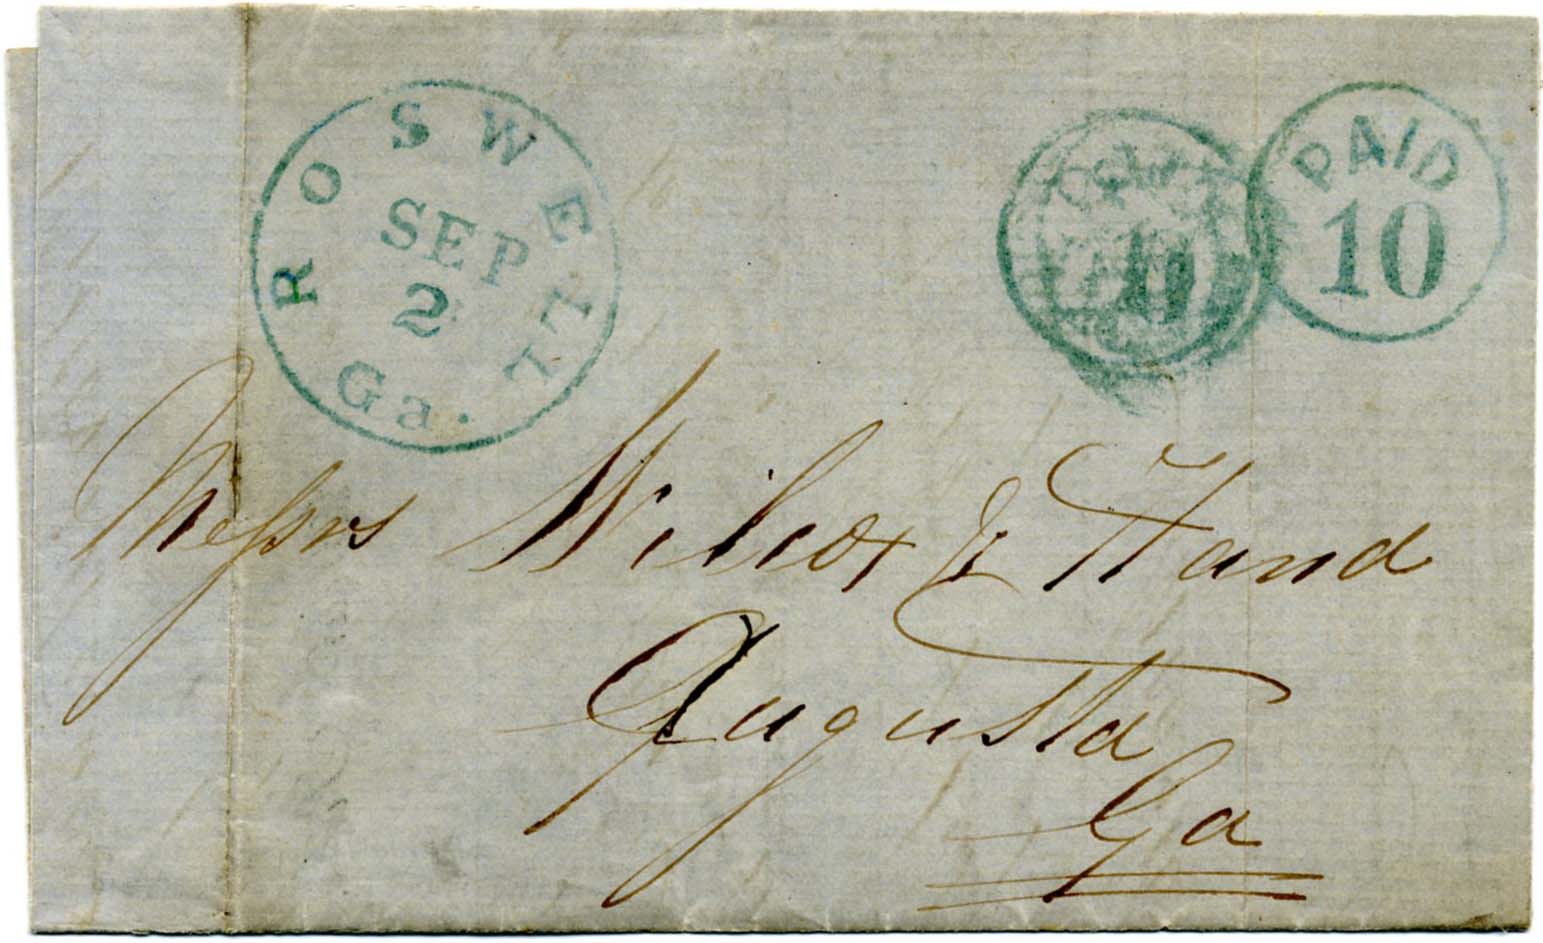 ROSWELL
SEP
2
Ga.
PAID
10
Messrs Wilcox & Hand
Augusta
Ga